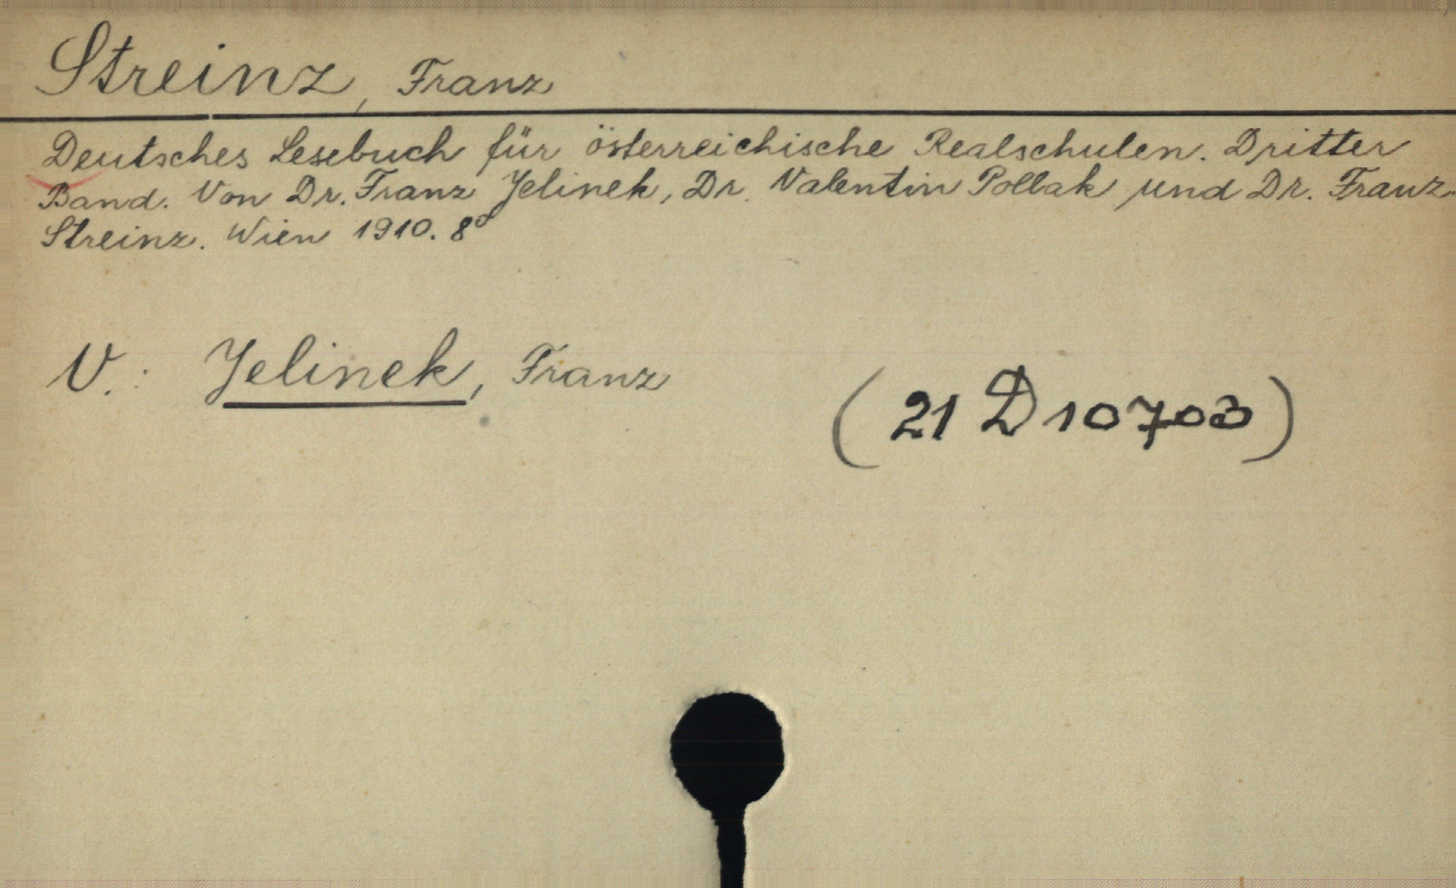 Streinz, Franz
Deutsches Lesebuch für österreichische Realschulen. Dritter
Band. Von Dr. Franz Jelinek, Dr. Valentin Pollak und Dr. Franz
Streinz. Wien 1910. 8°
V.: Jelinek, Franz
(21 D 10703)